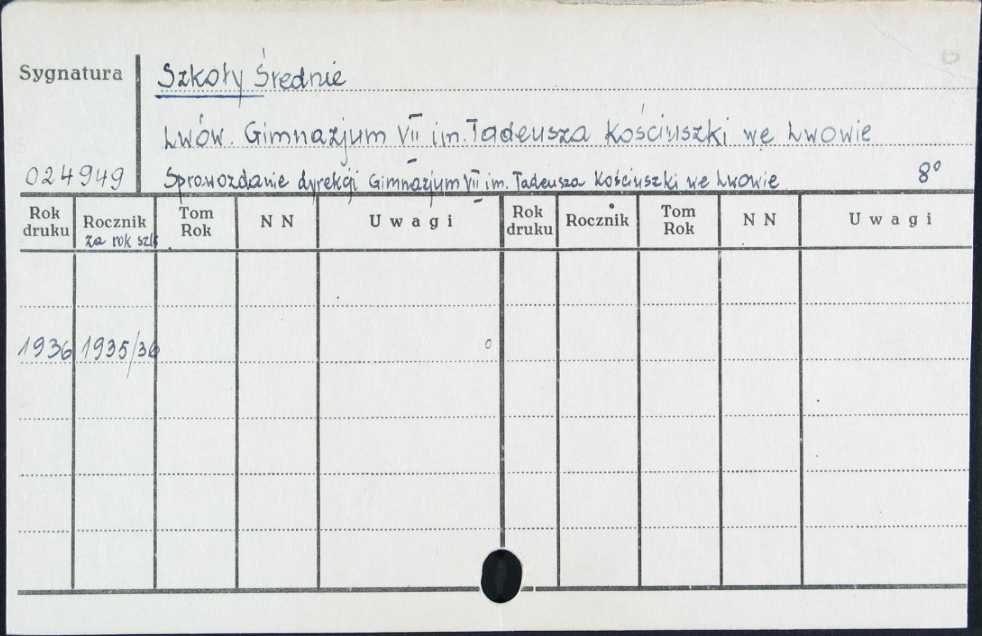 Sygnatura Szkoły Średnie
Lwów. Gimnazjum VII im. Tadeusza Kościuszki we Lwowie
024949 Sprawozdanie dyrekcji Gimnazjum VII im. Tadeusza Kościuszki we Lwowie 8°
Rok druku Rocznik za rok szk Tom Rok N N Uwagi Rok druku Rocznik Tom Rok N N Uwagi
1936 1935/36